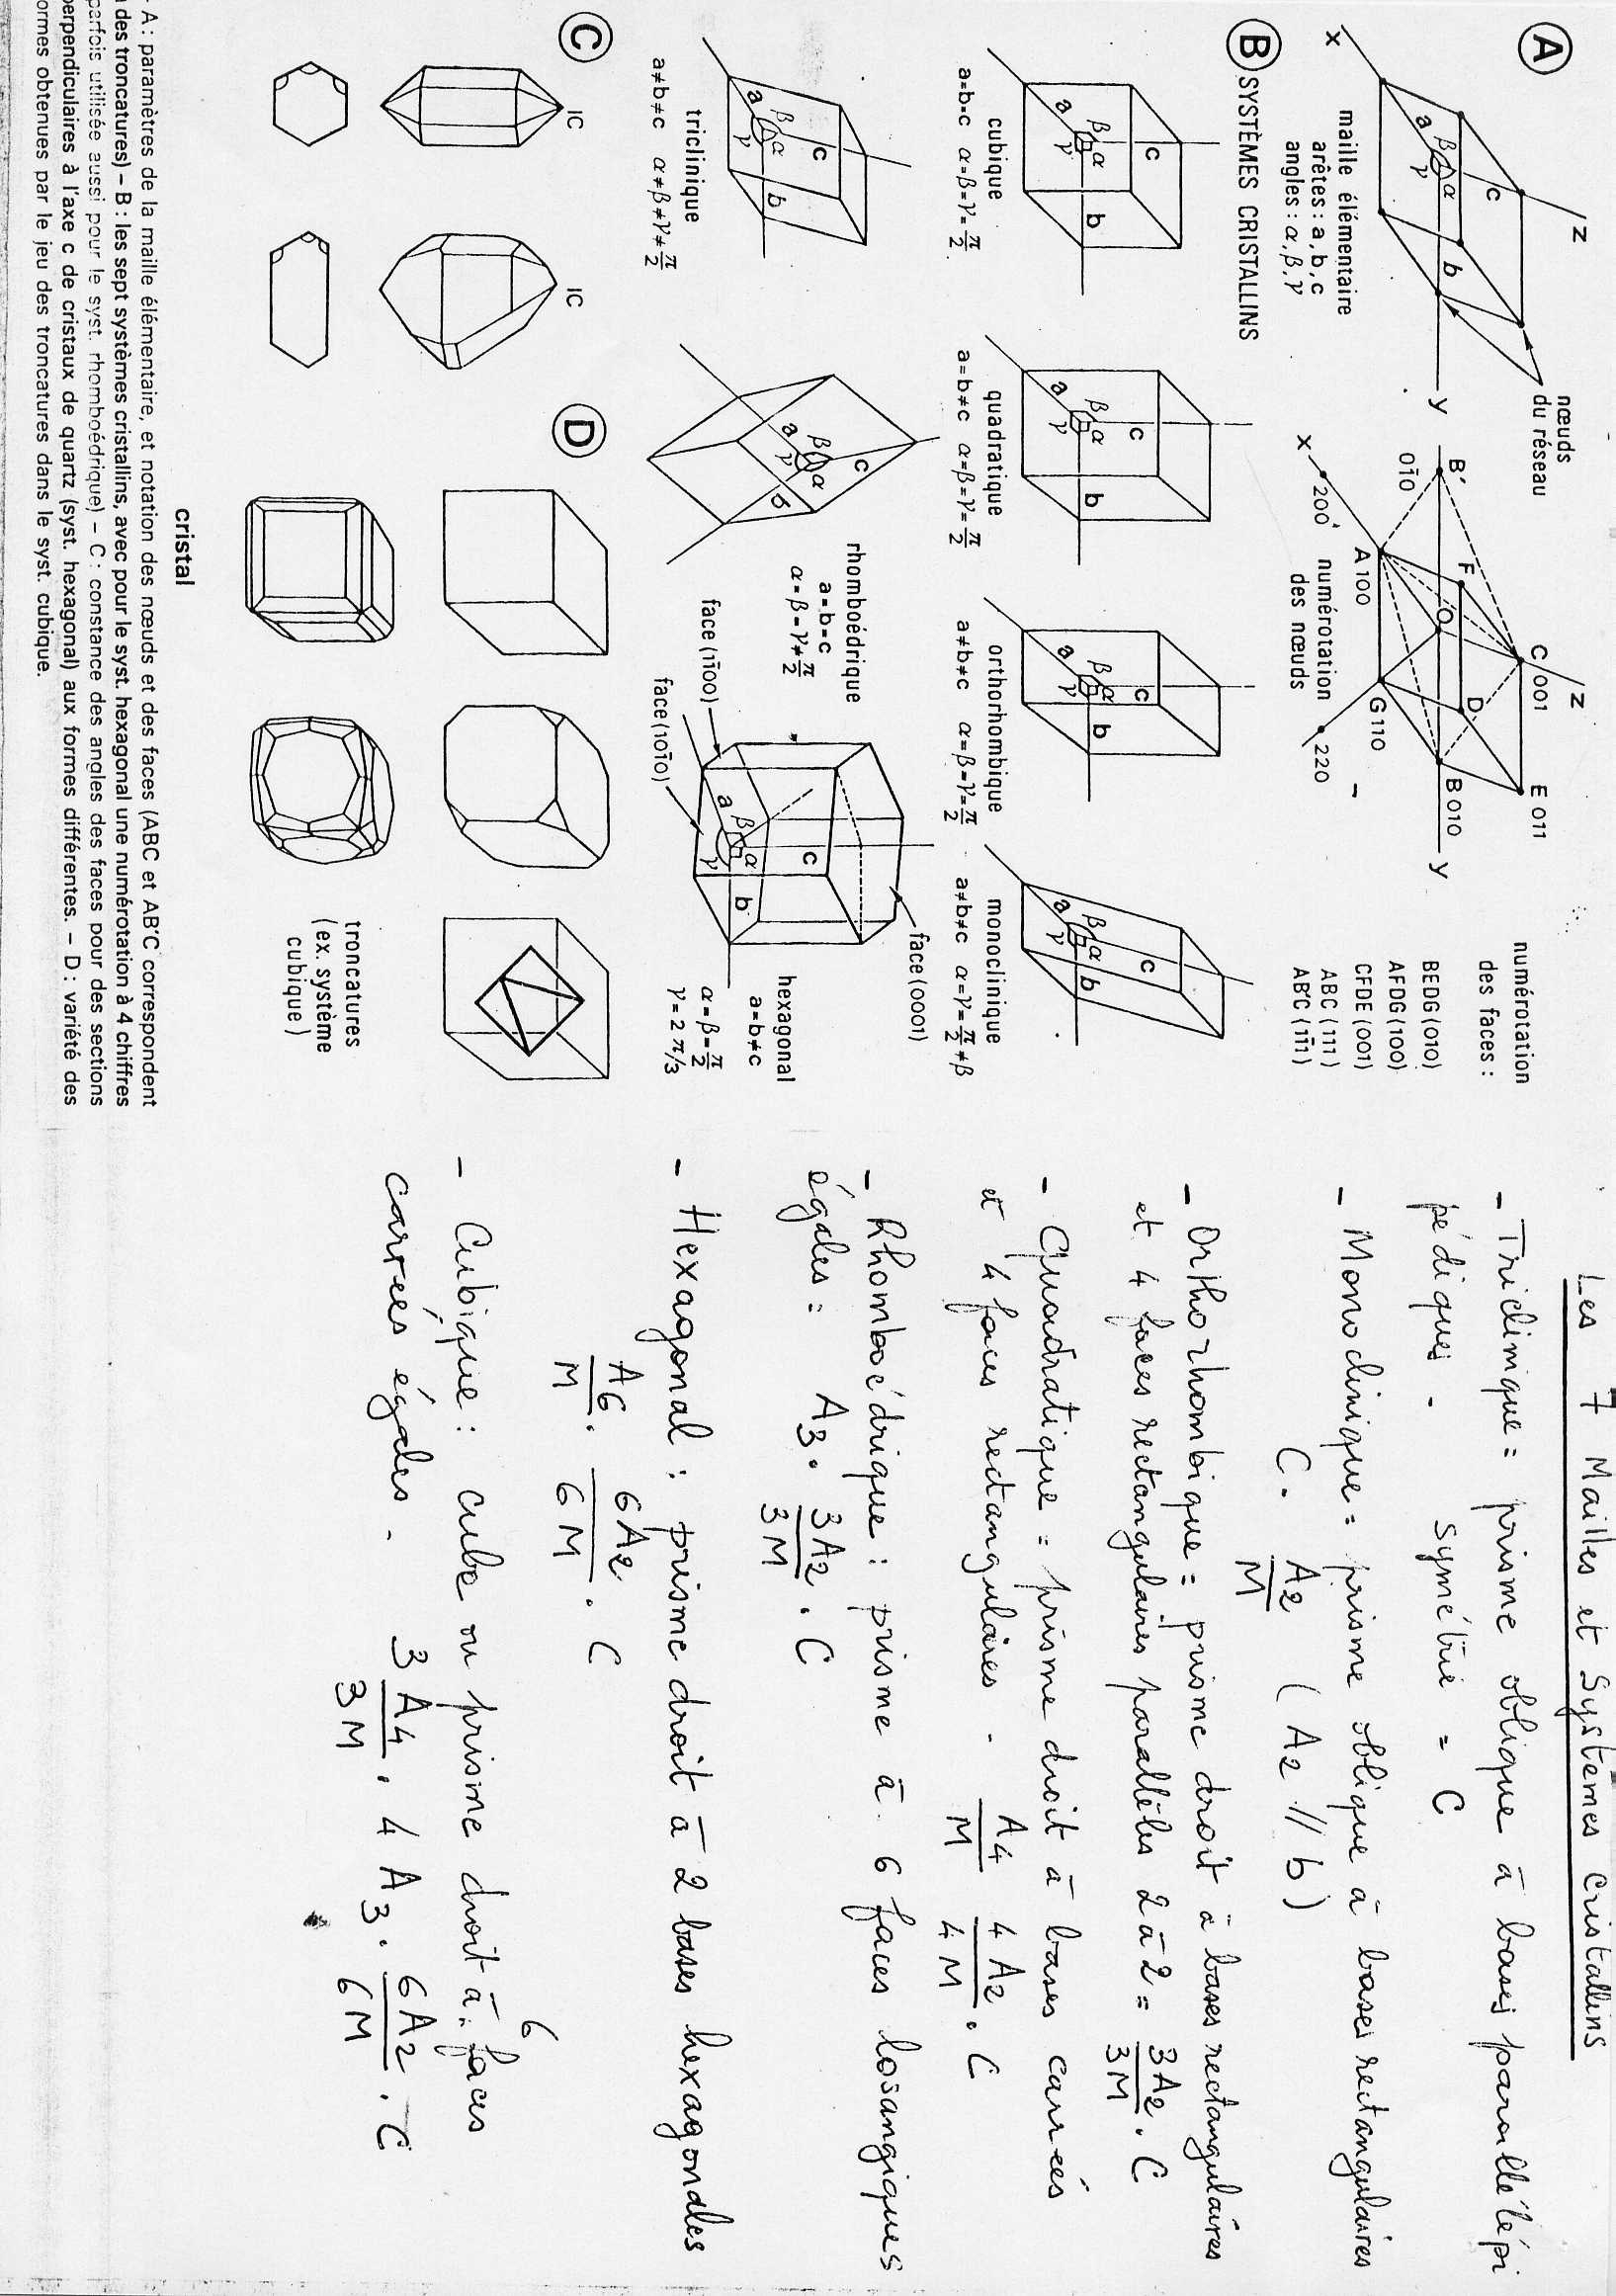 A
x
z
y
a
b
c
α
β
γ
nœuds
du réseau
maille élémentaire
arêtes : a, b, c
angles : α, β, γ
B'
01̄0
F
O
C 001
z
D
E 011
B 010
y
A 100
G 110
x
200
220
numérotation
des nœuds
numérotation
des faces :
BEDG (010)
AFDG (100)
CFDE (001)
ABC (111)
AB'C (11̄1)
B SYSTÈMES CRISTALLINS
cubique
a=b=c α=β=γ=π/2
quadratique
a=b≠c α=β=γ=π/2
orthorhombique
a≠b≠c α=β=γ=π/2
monoclinique
a≠b≠c α=γ=π/2≠β
triclinique
a≠b≠c α≠β≠γ≠π/2
rhomboédrique
a=b=c
α=β=γ≠π/2
face (11̄00)
face (101̄0)
face (0001)
hexagonal
a=b≠c
α=β=π/2
γ=2π/3
C
IC
IC
D
troncatures
(ex. système
cubique)
cristal
A : paramètres de la maille élémentaire, et notation des nœuds et des faces (ABC et AB'C correspondent
des troncatures) – B : les sept systèmes cristallins, avec pour le syst. hexagonal une numérotation à 4 chiffres
parfois utilisée aussi pour le syst. rhomboédrique) – C : constance des angles des faces pour des sections
perpendiculaires à l'axe c de cristaux de quartz (syst. hexagonal) aux formes différentes. – D : variété des
ormes obtenues par le jeu des troncatures dans le syst. cubique.
Les 7 Mailles et Systemes cristallins
- Triclinique = prisme oblique à bases parallélépi
pédiques - symétrie = C
- Monoclinique = prisme oblique à bases rectangulaires
C. A2/M (A2 // b)
- Orthorhombique = prisme droit à bases rectangulaires
et 4 faces rectangulaires parallèles 2 à 2 = 3A2/3M . C
- Quadratique = prisme droit à bases carrés
et 4 faces rectangulaires - A4/M 4A2/4M . C
- Rhomboédrique : prisme à 6 faces losangiques
égales = A3 . 3A2/3M . C
- Hexagonal : prisme droit à 2 bases hexagonales
A6/M . 6A2/6M . C
- Cubique : cube ou prisme droit à 6 faces
carrées égales - 3A4/3M . 4A3 . 6A2/6M . C